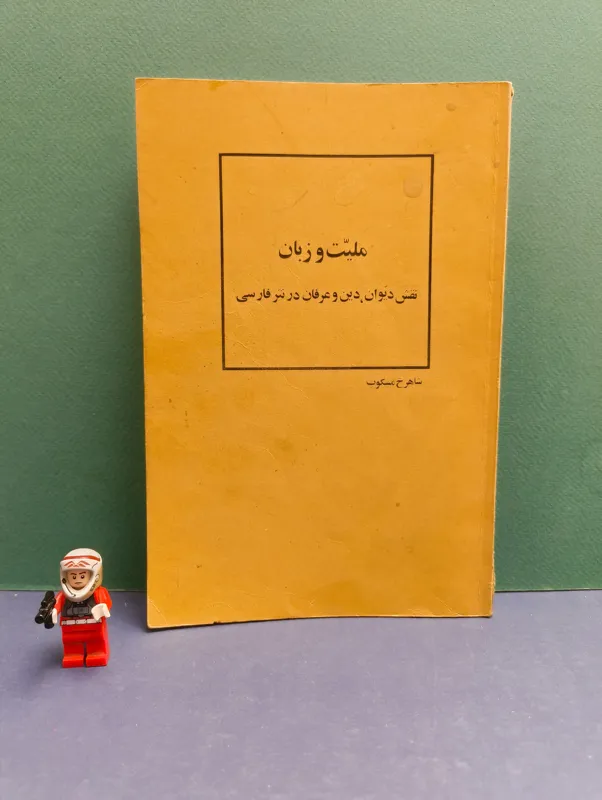 ملیّت و زبان
نقش دیوان، دین و عرفان در نثر فارسی
شاهرخ مسکوب